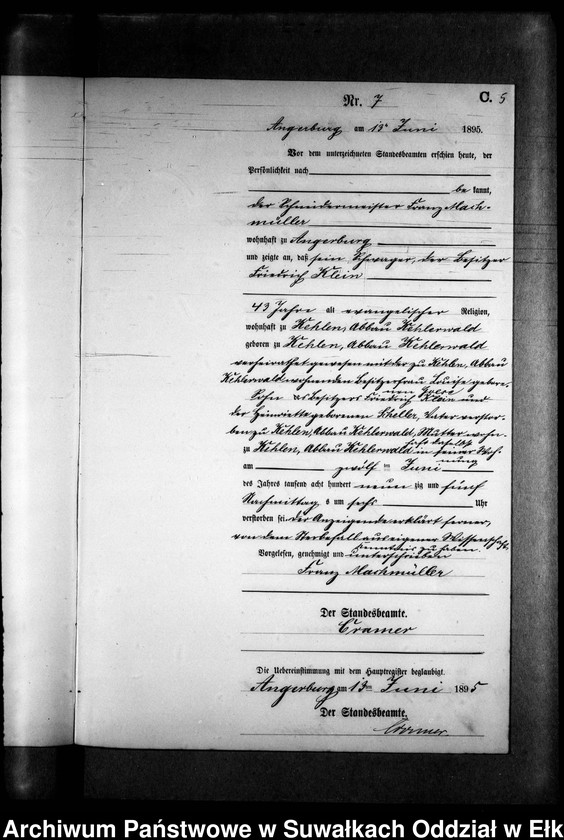 Nr. 7 C. 5
Angerburg am 13 Juni 1895.
Vor dem unterzeichneten Standesbeamten erschien heute, der
Persönlichkeit nach
bekannt,
der Schneidermeister Franz Mach-
müller
wohnhaft zu Angerburg
und zeigte an, daß sein Schwager, der Besitzer
Friedrich Klein
43 Jahre alt evangelischer Religion,
wohnhaft zu Kehlen, Abbau Kehlerwald
geboren zu Kehlen, Abbau Kehlerwald
verheirathet gewesen mit der zu Kehlen, Abbau
Kehlerwald wohnenden Besitzerfrau Louise gebore-
nen
Sohn des Besitzers Friedrich Klein und
der Henriette geborenen Scheller, Vater verstor-
ben zu Kehlen, Abbau Kehlerwald, Mutter wohn-
haft daselbst
zu Kehlen, Abbau Kehlerwald in seiner Woh-
nung
am zwölften Juni
des Jahres tausend acht hundert neunzig und fünf
Nachmittags um sechs Uhr
verstorben sei, der Anzeigende erklärt ferner,
von dem Sterbefall aus eigener Wissenschaft
Kenntnis zu haben
Vorgelesen, genehmigt und unterschrieben
Franz Machmüller
Der Standesbeamte.
Cramer
Die Uebereinstimmung mit dem Hauptregister beglaubigt.
Angerburg am 13ten Juni 1895
Der Standesbeamte.
Cramer.
Archiwum Państwowe w Suwałkach Oddział w Ełk